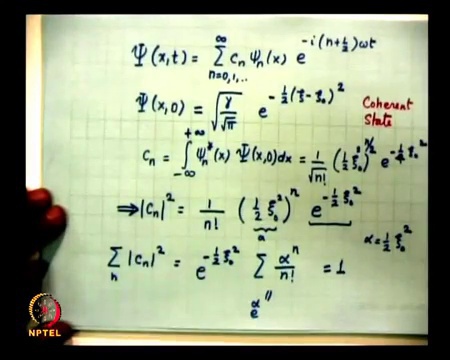 Ψ(x,t) = Σ_{n=0,1,..}^{∞} c_n ψ_n(x) e^{-i(n+½)ωt}
Ψ(x,0) = √(γ/√π) e^{-½(ξ-ξ₀)²}
Coherent
State
c_n = ∫_{-∞}^{+∞} ψ_n*(x) Ψ(x,0)dx = 1/√n! (½ξ₀²)^{n/2} e^{-¼ξ₀²}
⇒|c_n|² = 1/n! (½ξ₀²)^n e^{-½ξ₀²}
α α = ½ξ₀²
Σ_n |c_n|² = e^{-½ξ₀²} Σ α^n/n! = 1
e^α
NPTEL